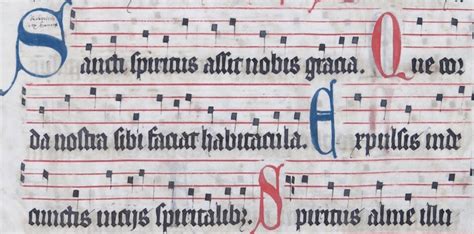 Sancti spiritus assit nobis gracia. Que cor
da nostra sibi faciat habitacula. Expulsis inde
cunctis vicijs spiritalibꝫ. Spiritus alme illu